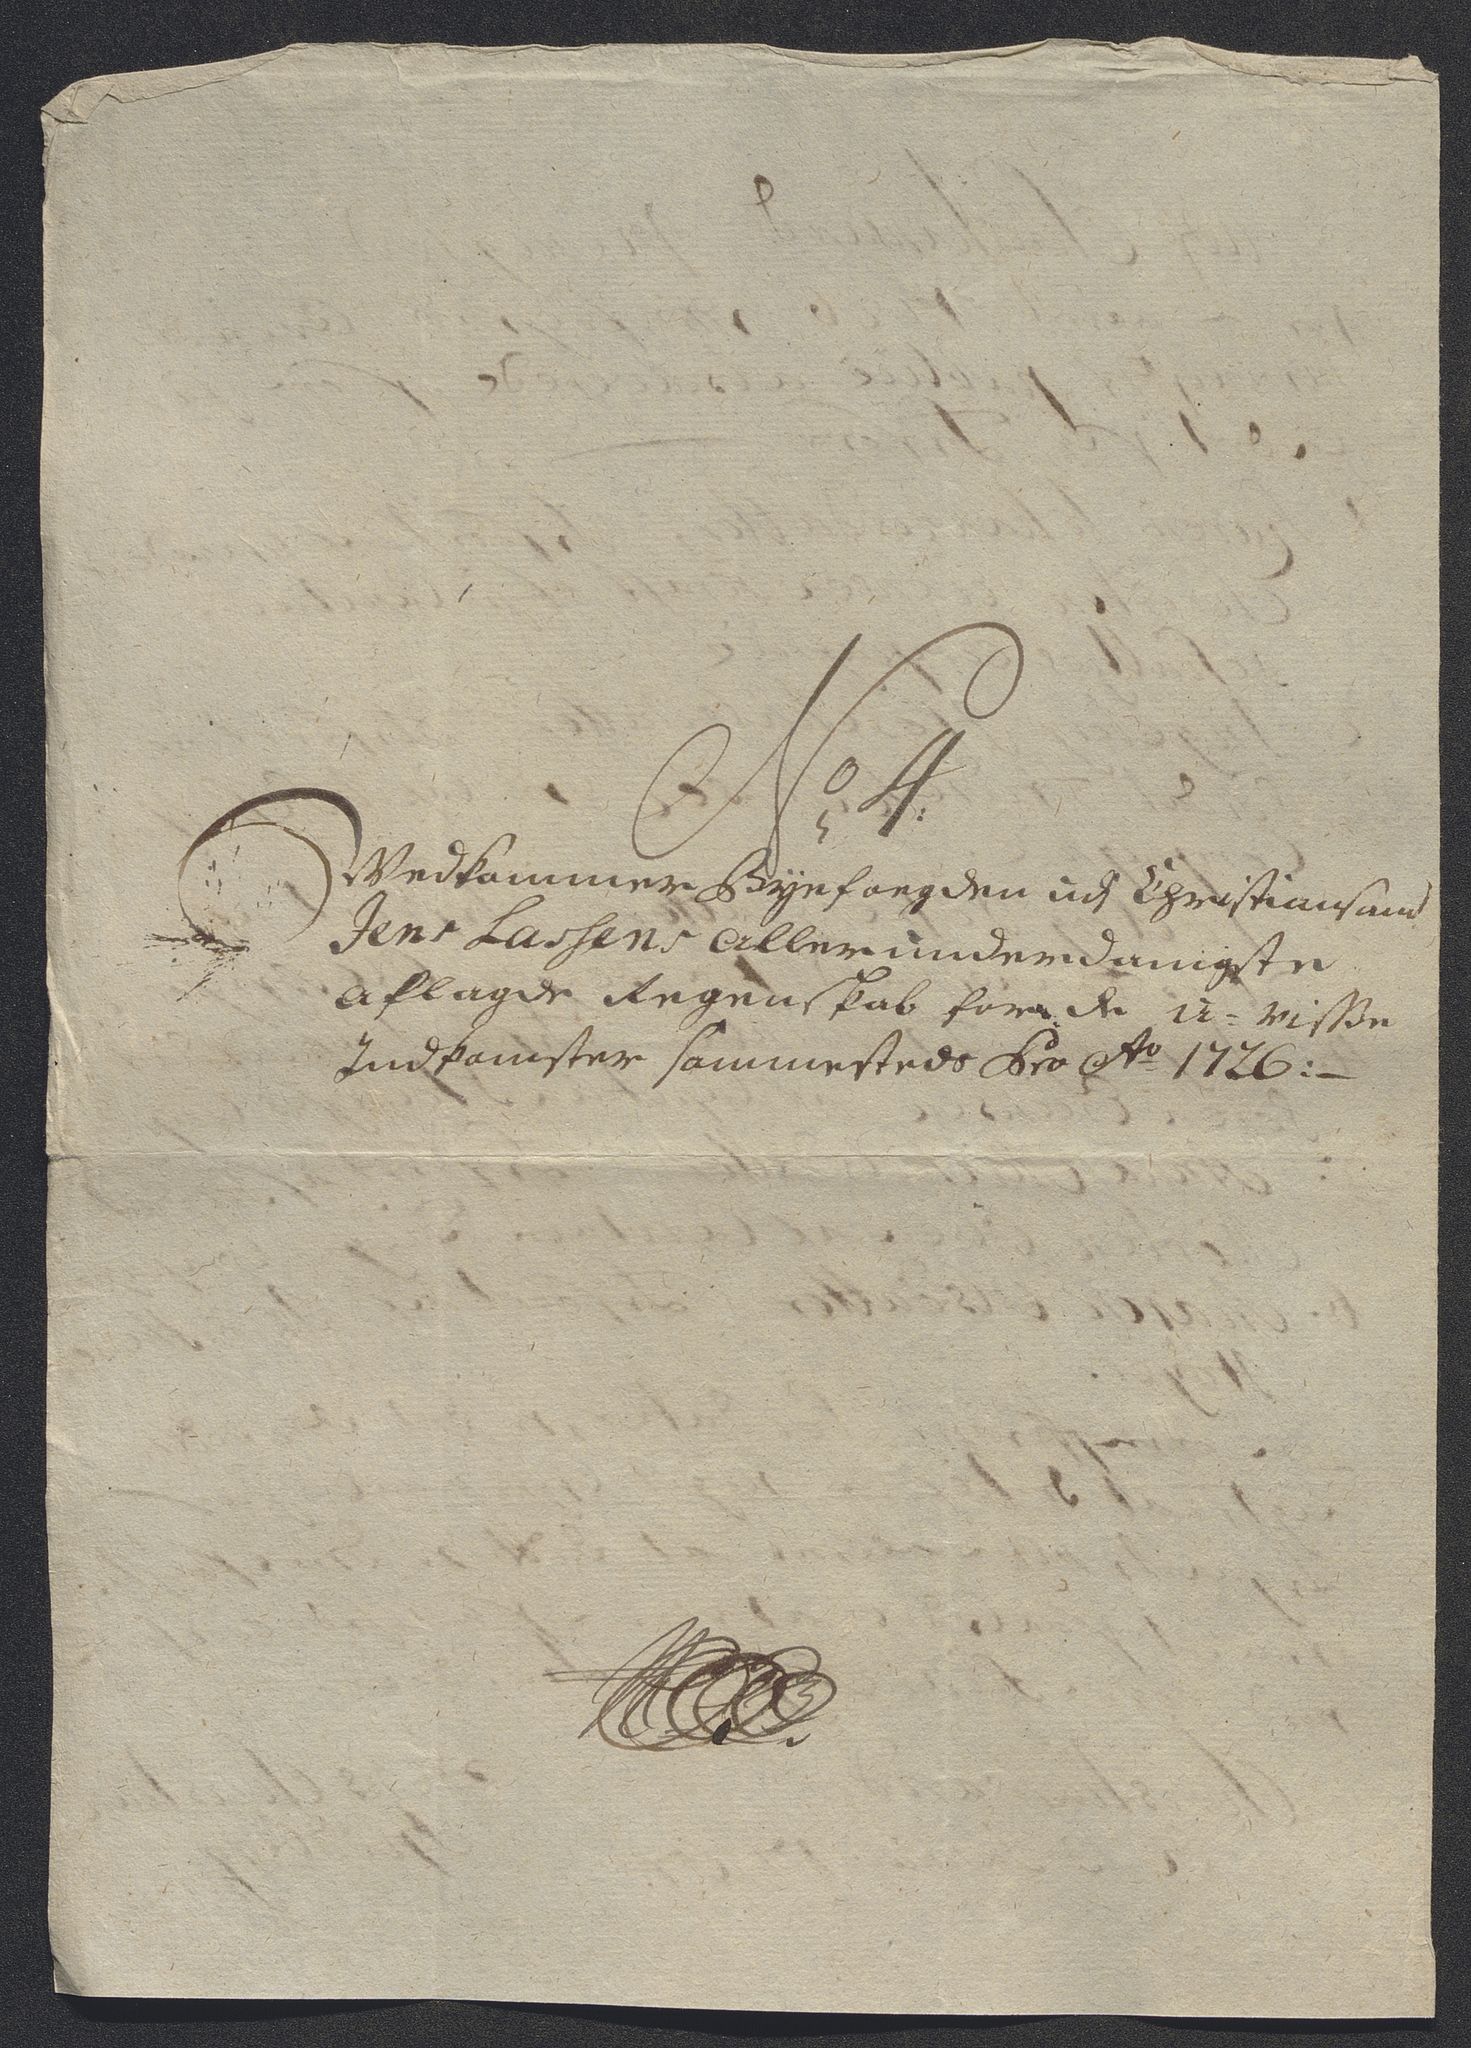 No 4:
Vedkommer Byefoegden udj Christiansand
Jens Lassens allerunderdanigste
aflagde Regenskab for de u-visse
Indkomster sammesteds Pro Ao 1726:-